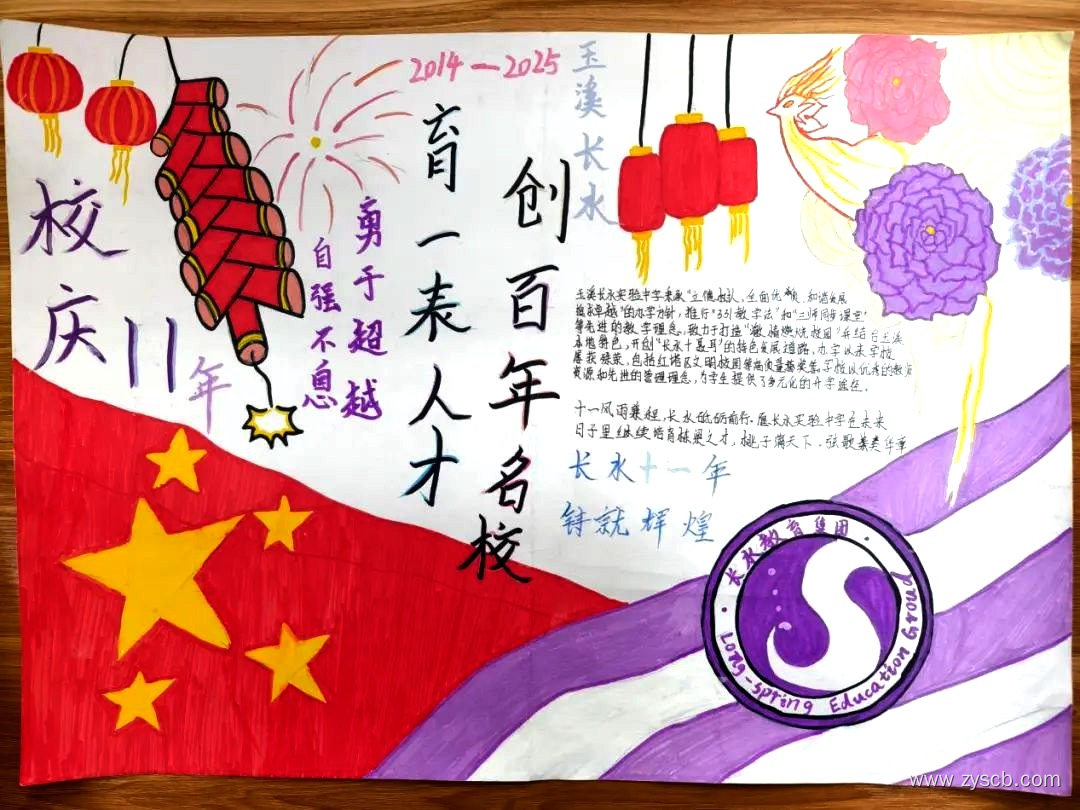 2014—2025
玉溪长水
校庆11年
自强不息
勇于超越
育一表人才
创百年名校
玉溪长水实验中学秉承"立德树人、全面优质、和谐发展
追求卓越"的办学方针，推行"331教学法"和"三师同步课堂"
等先进的教学理念。致力于打造"激情燃烧校园"并结合玉溪
本地特色，开创"长水十聂耳"的特色发展道路，办学以来学校
屡获殊荣，包括红塔区文明校园等高质量荣奖等。学校以优秀的教师
资源和先进的管理理念，为学生提供了多元化的升学途径。
十一风雨兼程，长水砥砺前行。愿长水实验中学在未来
日子里继续培育栋梁之才，桃子满天下，弦歌
长水十一年
铸就辉煌
长水教育集团
Long-spring Education Groud
www.zyscb.com